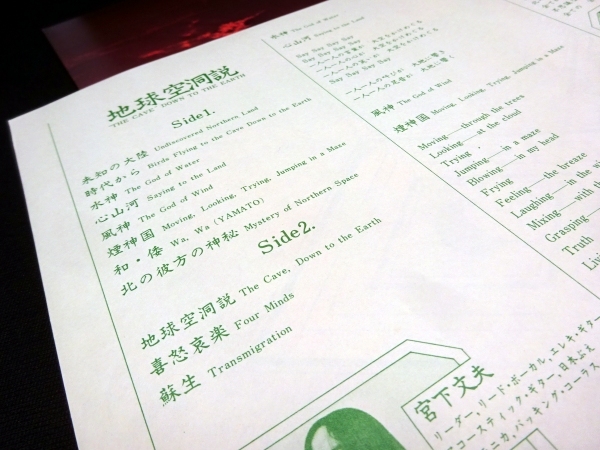 地球空洞説
"THE CAVE" DOWN TO THE EARTH
Side1.
未知の大陸 Undiscovered Northern Land
時代から Birds Flying to the Cave Down to the Earth
水神 The God of Water
心山河 Saying to the Land
風神 The God of Wind
煙神国 Moving, Looking, Trying, Jumping in a Maze
和・倭 Wa, Wa (YAMATO)
北の彼方の神秘 Mystery of Northern Space
Side2.
地球空洞説 The Cave, Down to the Earth
喜怒哀楽 Four Minds
蘇生 Transmigration
水神 The God of Water
心山河 Saying to the Land
Say Say Say Say
一人一人の言葉が 大空をかけめぐる
一人一人の思いが 大空をかけめぐる
Say Say Say Say
一人一人の叫びが 大地に響き
一人一人の足音が 大地に響く
風神 The God of Wind
煙神国 Moving, Looking, Trying, Jumping in a Maze
Moving—through the trees
Looking—at the cloud
Trying
Jumping—in a maze
Blowing—in my head
Frying
Feeling—the breaze
Laughing—in the
Mixing—with
Grasping
Truth
宮下文夫
リーダー,リード・ボーカル,エレキ・ギター
アコースティック・ギター,日本ぶえ
ニカ,バッキング・コーラス